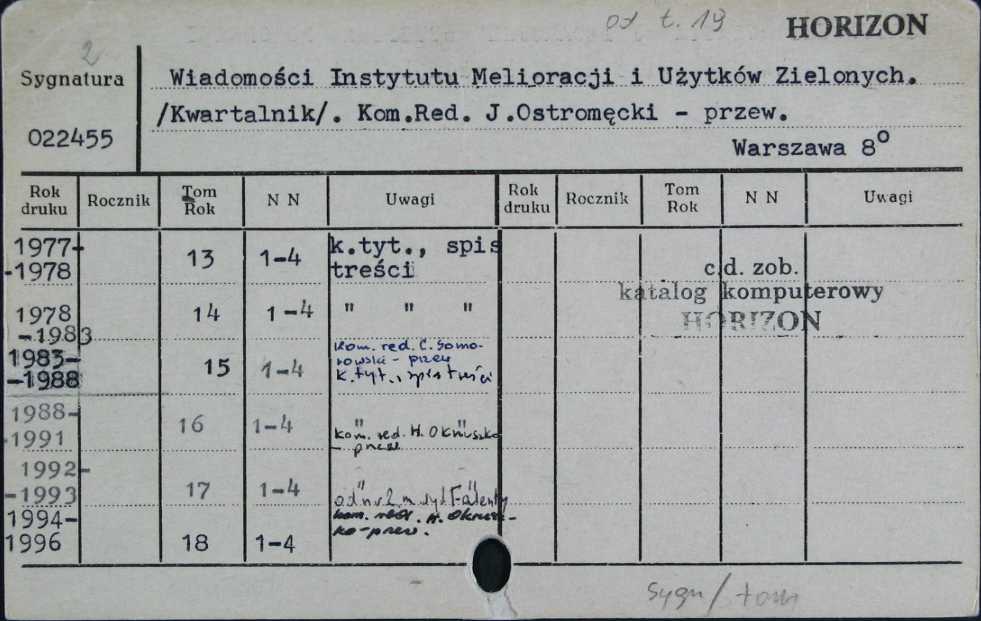 od t. 19
HORIZON
2
Sygnatura
022455
Wiadomości Instytutu Melioracji i Użytków Zielonych.
/Kwartalnik/. Kom.Red. J.Ostromęcki - przew.
Warszawa 8°
Rok druku Rocznik Tom Rok N N Uwagi Rok druku Rocznik Tom Rok N N Uwagi
1977-
-1978 13 1-4 k.tyt., spis
treści
c.d. zob.
katalog komputerowy
HORIZON
1978
-1983 14 1-4 " " "
1983-
-1988 15 1-4 Kom. red. C. Somo-
rowski - przew
k.tyt., spis treści
1988-
-1991 16 1-4 " "
kom. red. H. Okruszko
- przew
1992-
-1993 17 1-4 " "
od nr 2 m. wyd. Falenty
1994-
1996 18 1-4 kom. red. H. Okrusz-
ko-przew.
sygn/tom